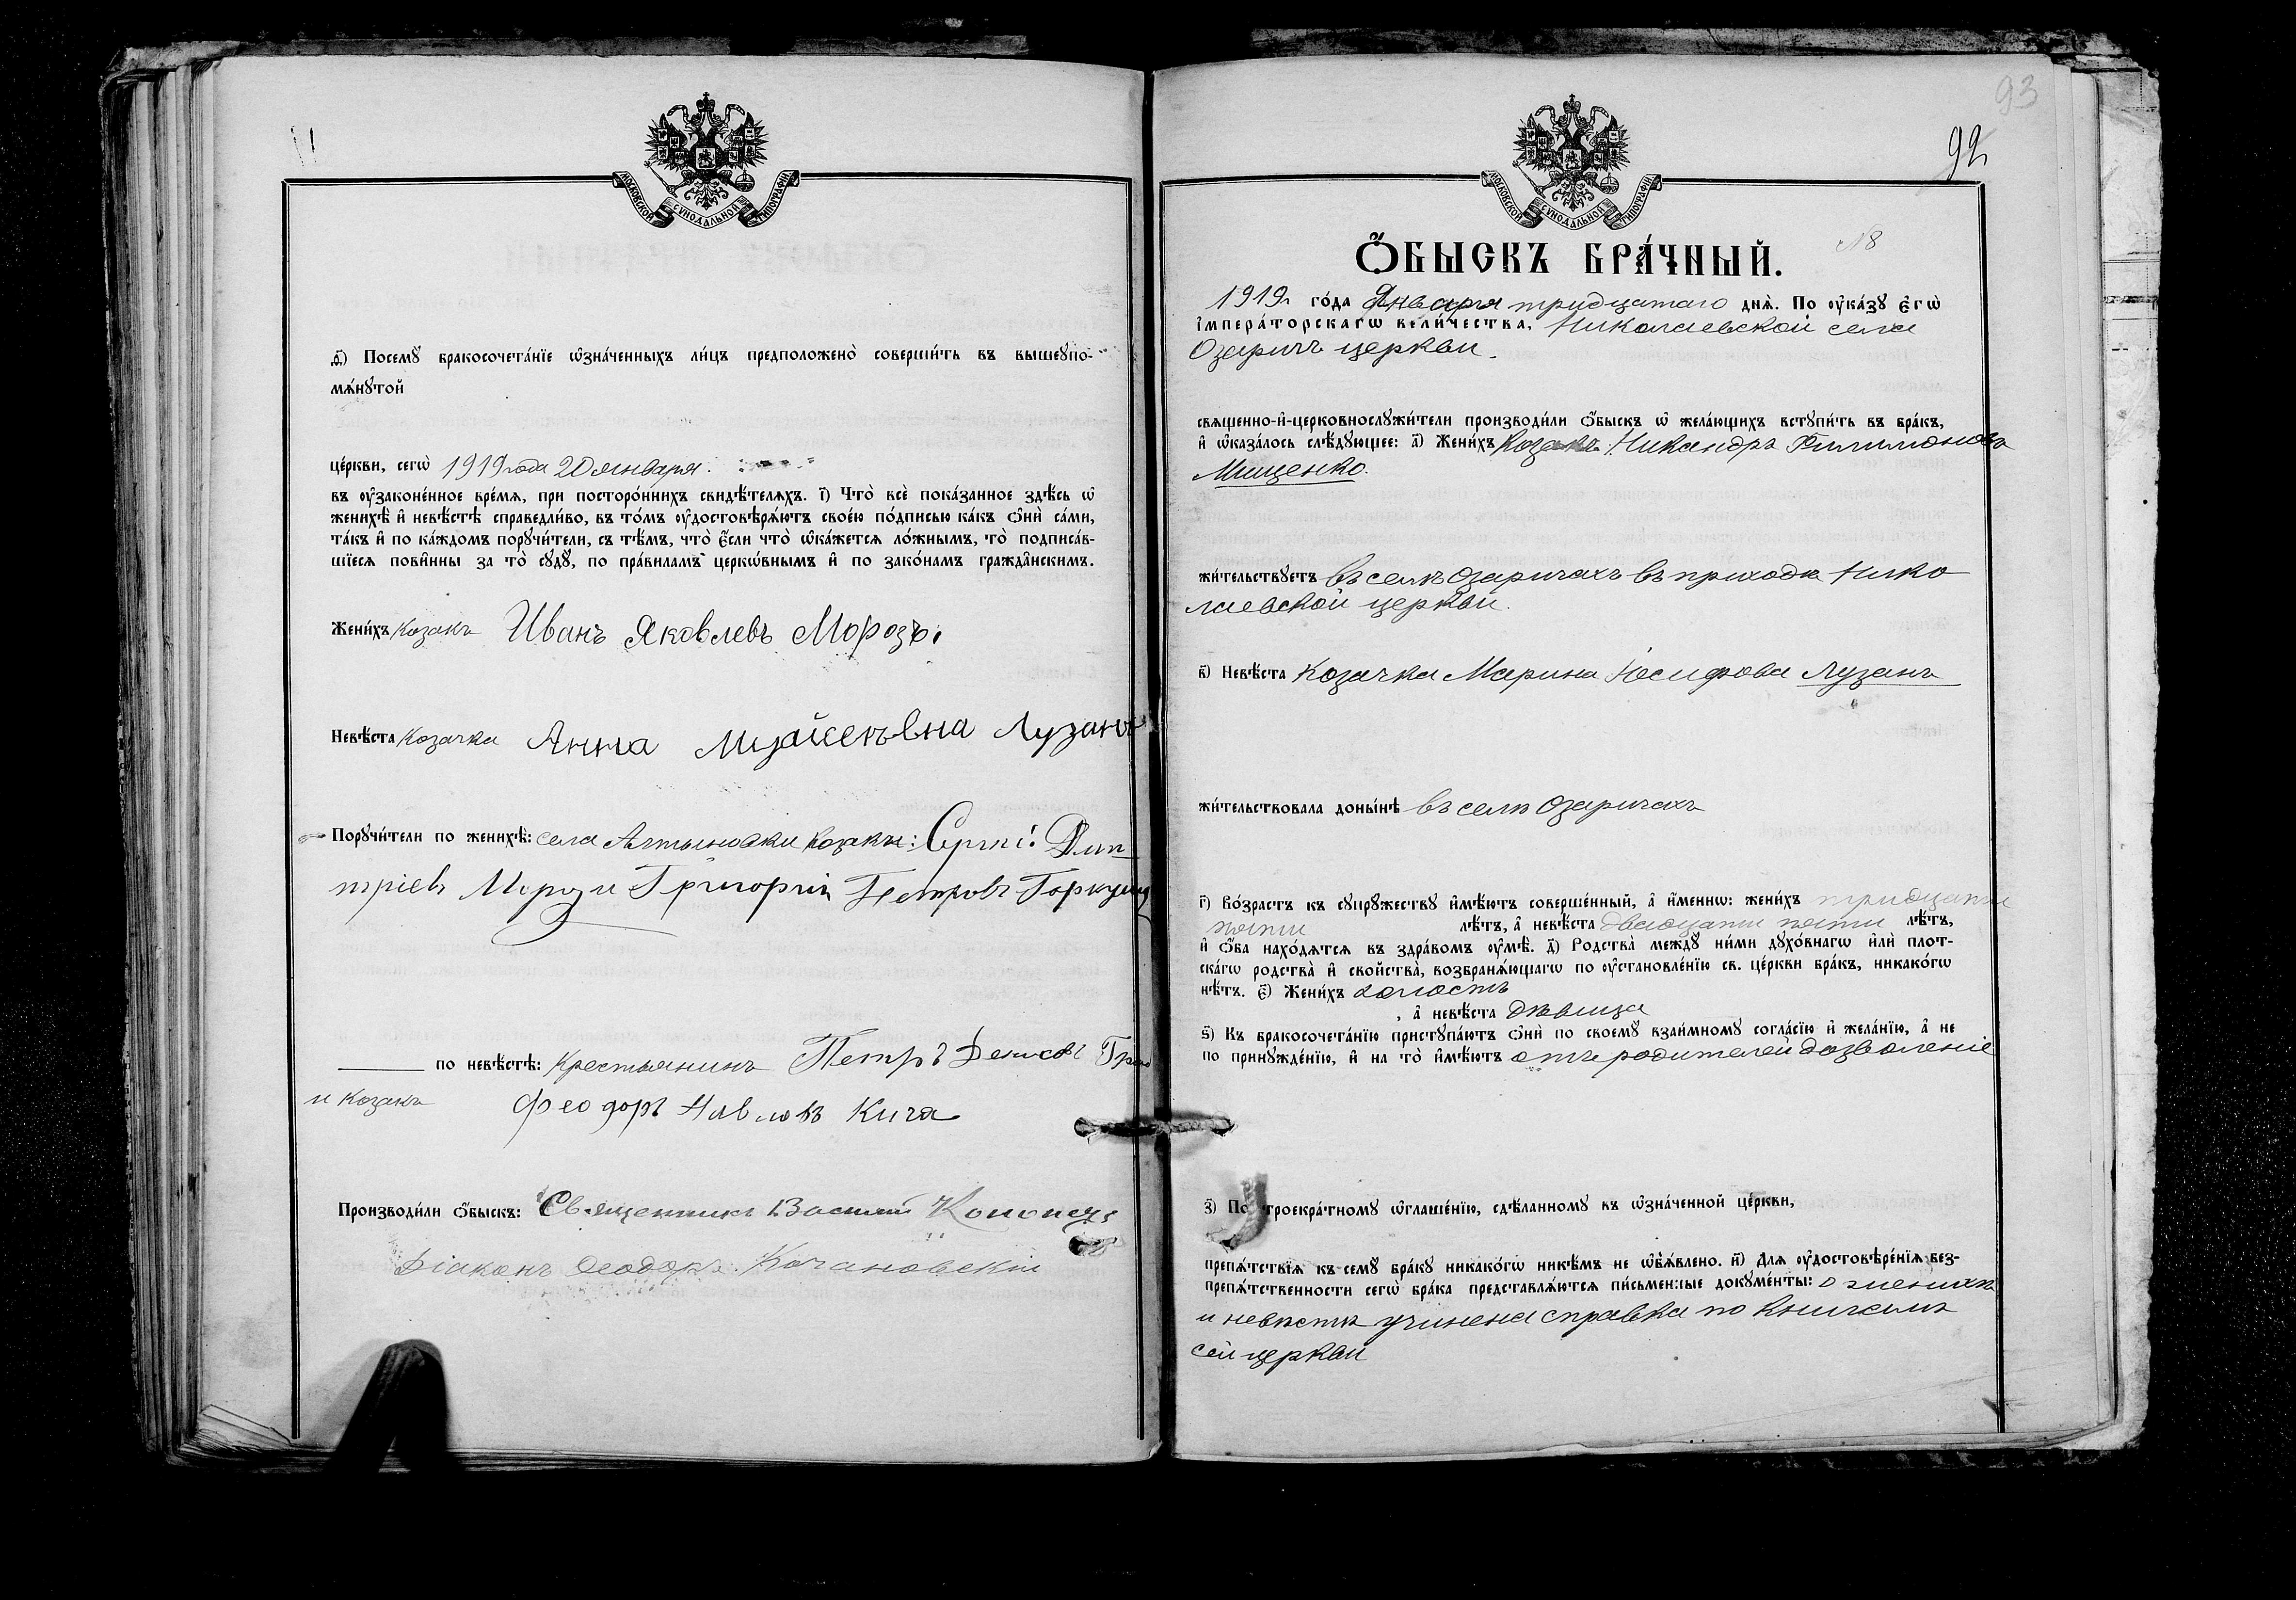 МОСКОВСКОЙ СѴНОДАЛЬНОЙ ТИПОГРАФІИ
ѳ҃) Посемꙋ̀ бракосочета́нїе ѡ҆зна́ченныхъ ли́цъ предположено̀ соверши́ть въ вышеꙋпо-
мѧ́нꙋтой
це́ркви, сегѡ̀ 1919 года 20 января.
въ ᲂу҆зако́ненное вре́мѧ, при посторо́ннихъ свидѣ́телѧхъ. і҃) Что̀ всѐ пока́занное здѣ́сь ѡ҆
женихѣ̀ и҆ невѣ́стѣ справедли́во, въ то́мъ ᲂу҆достовѣрѧ́ютъ свое́ю по́дписью ка́къ ѻ҆нѝ са́ми,
та́къ и҆ по ка́ждомъ порꙋчи́тели, съ тѣ́мъ, что̀ є҆́сли что̀ ѡ҆ка́жетсѧ ло́жнымъ, то̀ подписа́в-
шїесѧ пови́нны за то̀ сꙋдꙋ̀, по пра́виламъ церкѡ́внымъ и҆ по зако́намъ гражда́нскимъ.
Жени́хъ козакъ Иванъ Яковлевъ Морозъ.
Невѣ́ста козачка Анна Лузанъ
Порꙋчи́тели по женихѣ̀: села Алтыновки козаки: Сергѣй Дми-
тріевъ Мороз и Григорій Петровъ Горкуша
по невѣ́стѣ: крестьянинъ Петръ Денисовъ
и козакъ Феодоръ Павловъ Кича
Производи́ли ѻ҆́быскъ: Священникъ Василій
Діаконъ Ѳеодоръ Кочановскій
93
92
МОСКОВСКОЙ СѴНОДАЛЬНОЙ ТИПОГРАФІИ
Ѻ҆́БЫСКЪ БРА́ЧНЫЙ. №8
1919 го́да Января тридцатаго днѧ̀. По ᲂу҆ка́зꙋ є҆гѡ̀
і҆мпера́торскагѡ вели́чества, Николаевской села
Озаричъ церкви.
свѧще́нно-и҆-церковнослꙋжи́тели производи́ли ѻ҆́быскъ ѡ҆ жела́ющихъ встꙋпи́ть въ бра́къ,
и҆ ѡ҆каза́лось слѣ́дꙋющее: а҃) Жени́хъ козакъ Никандръ Филимоновъ
Мищенко.
жи́тельствꙋетъ въ селѣ Озаричахъ въ приходѣ Нико
лаевской церкви.
в҃) Невѣ́ста козачка Марина Іосифова Лузанъ
жи́тельствовала доны́нѣ въ селѣ Озаричахъ
г҃) Во́зрастъ къ сꙋпрꙋ́жествꙋ и҆мѣ́ютъ соверше́нный, а҆ и҆́меннѡ: жени́хъ тридцати
пяти лѣ́тъ, а҆ невѣ́ста двадцати пяти лѣ́тъ,
и҆ ѻ҆́ба нахо́дѧтсѧ въ здра́вомъ ᲂу҆мѣ̀. д҃) Родства̀ междꙋ̀ ни́ми дꙋхо́внагѡ и҆лѝ плот-
ска́гѡ родства̀ и҆ свойства̀, возбранѧ́ющагѡ по ᲂу҆становле́нїю св. це́ркви бра́къ, никако́гѡ
нѣ́тъ. є҃) Жени́хъ холостъ
, а҆ невѣ́ста дѣвица
ѕ҃) Къ бракосочета́нїю пристꙋпа́ютъ ѻ҆нѝ по своемꙋ̀ взаи́мномꙋ согла́сїю и҆ жела́нїю, а҆ не
по принꙋжде́нїю, и҆ на то̀ и҆мѣ́ютъ отъ родителей дозволеніе
з҃) По троекра́тномꙋ ѡ҆глаше́нїю, сдѣ́ланномꙋ въ ѡ҆зна́ченной це́ркви,
препѧ́тствїѧ къ семꙋ̀ бра́кꙋ никако́гѡ никѣ́мъ не ѡ҆бъѧ́влено. и҃) Длѧ ᲂу҆достовѣре́нїѧ без-
препѧ́тственности сегѡ̀ бра́ка представлѧ́ютсѧ пи́сьменные докꙋме́нты: о женихѣ
и невѣстѣ учинена справка по книгамъ
сей церкви